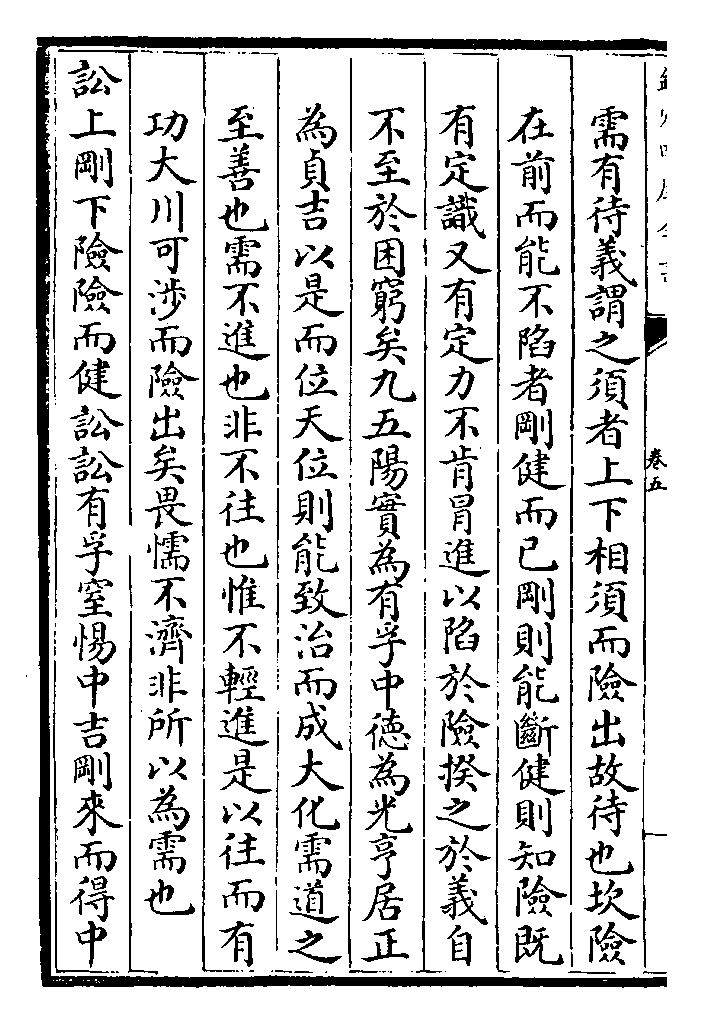 卷五
需有待義謂之須者上下相須而險出故待也坎險
在前而能不陷者剛健而已剛則能斷健則知險既
有定識又有定力不肯冒進以陷於險揆之於義自
不至於困窮矣九五陽實為有孚中德為光亨居正
為貞吉以是而位天位則能致治而成大化需道之
至善也需不進也非不往也惟不輕進是以往而有
功大川可涉而險出矣畏懦不濟非所以為需也
訟上剛下險險而健訟訟有孚窒惕中吉剛來而得中